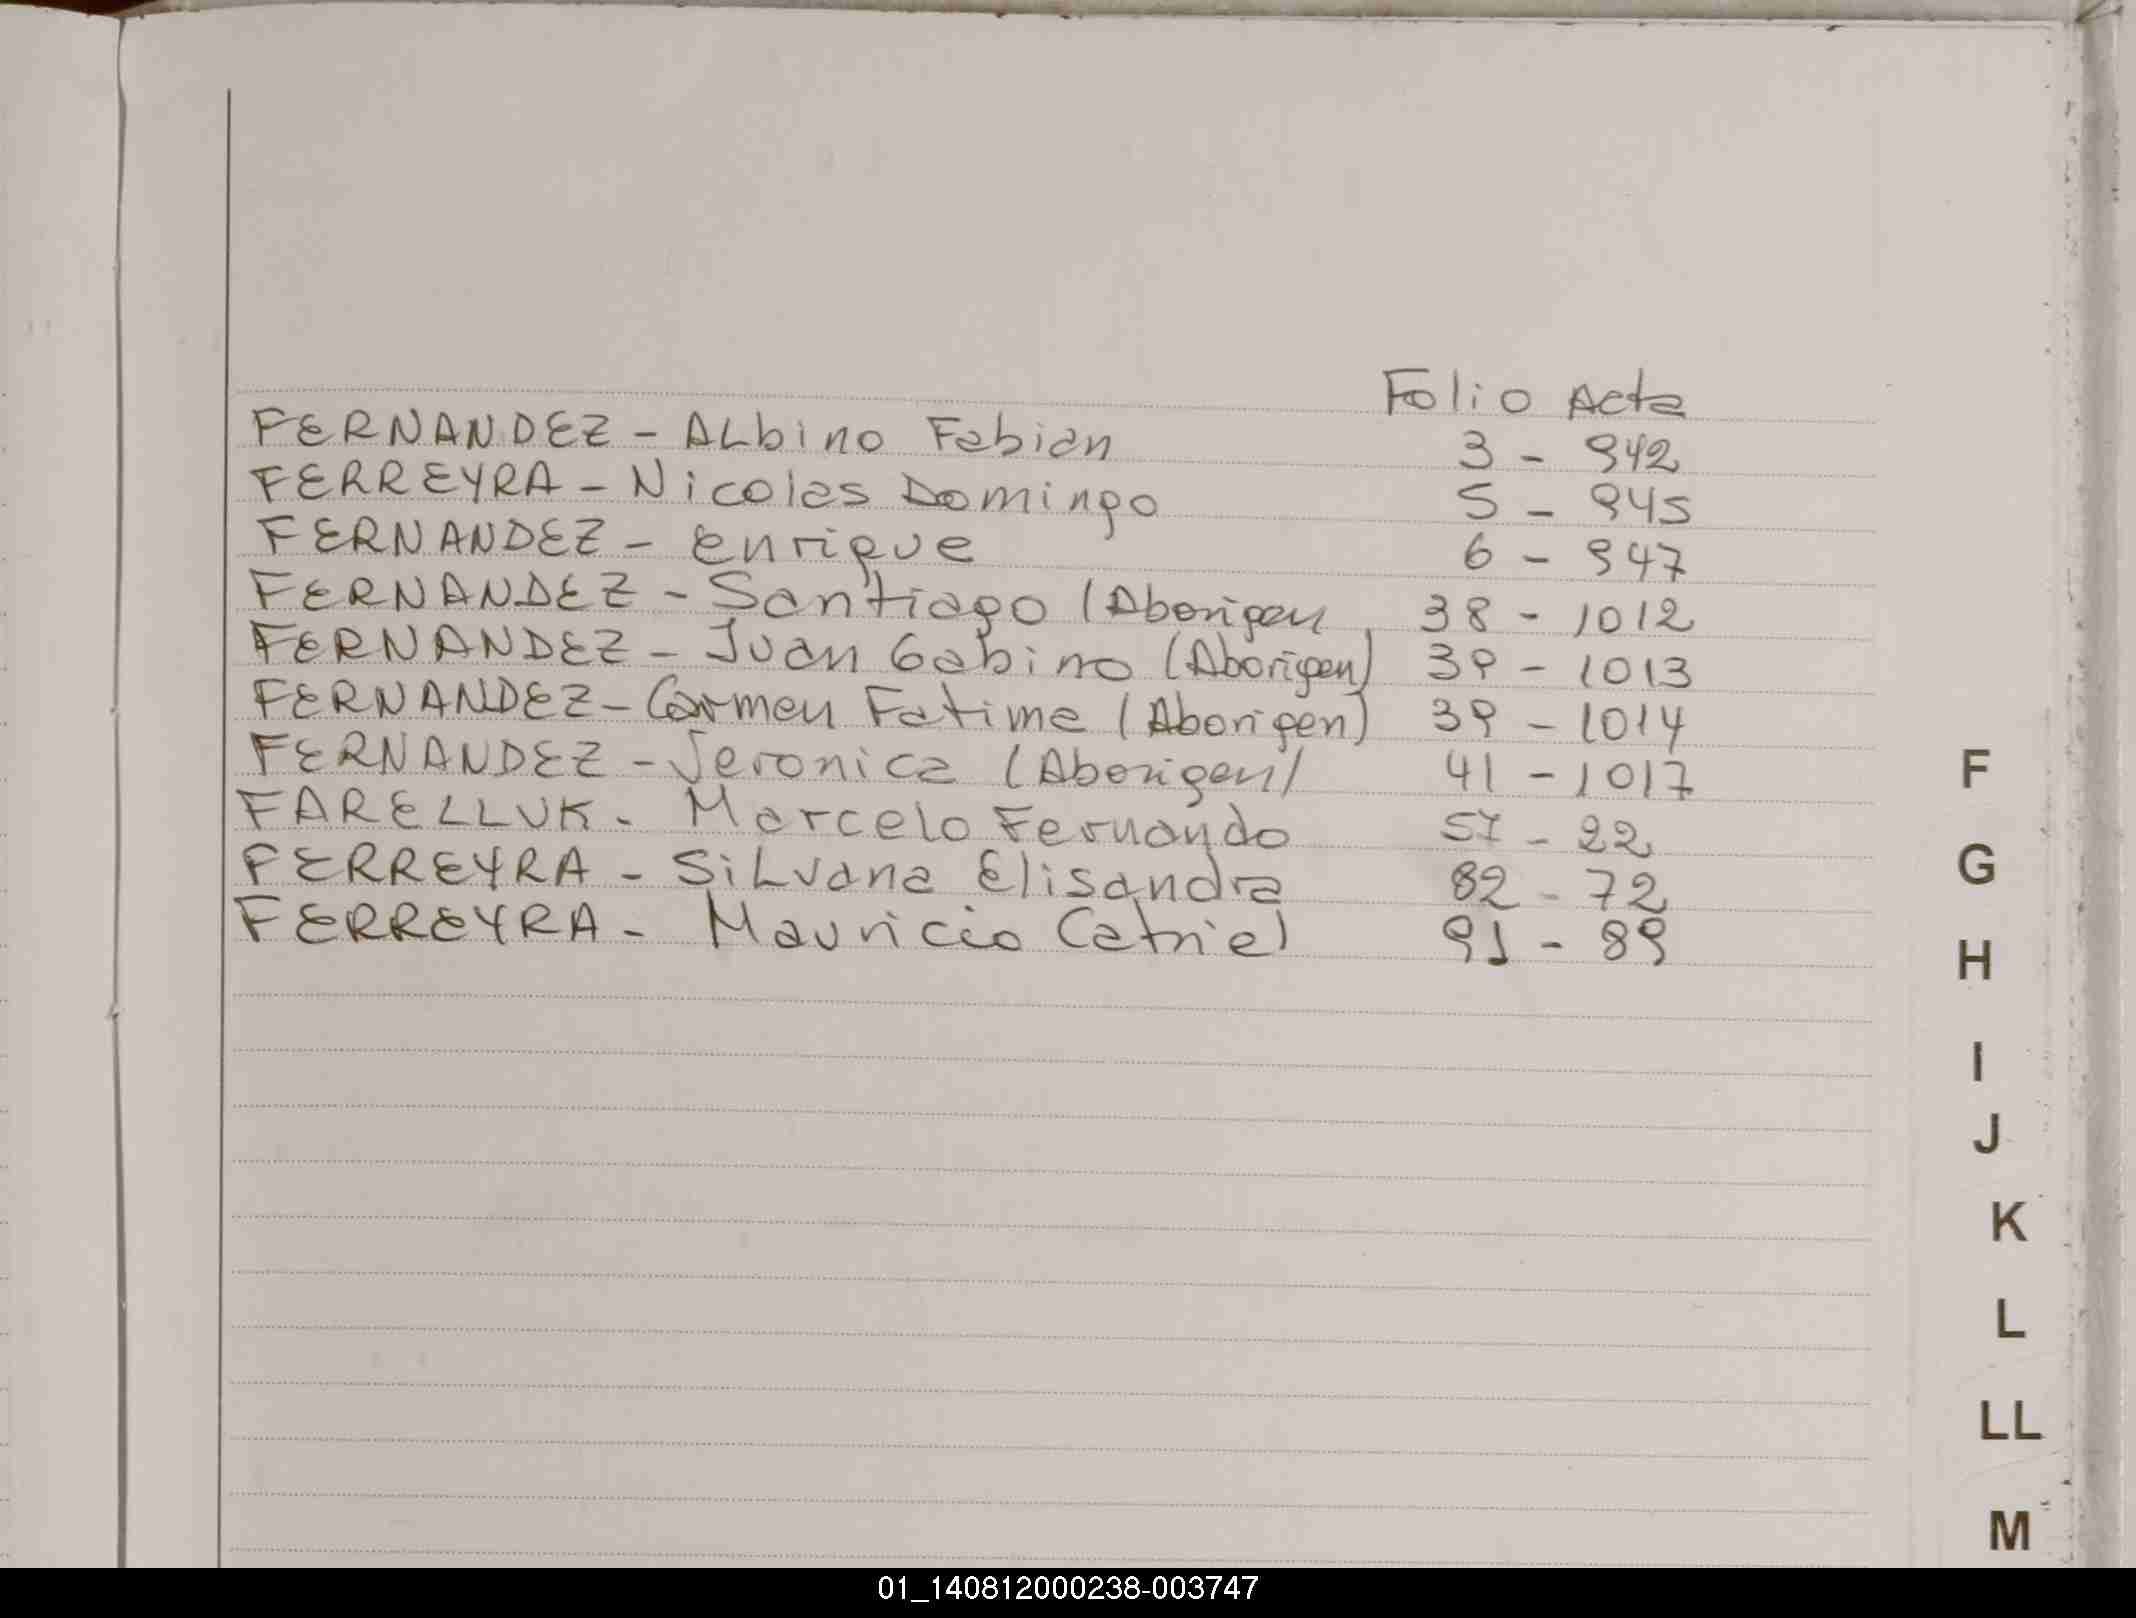 Folio Acta
FERNANDEZ - ALbino Fabian 3 - 942
FERREYRA - Nicolas Domingo 5 - 945
FERNANDEZ - enrique 6 - 947
FERNANDEZ - Santiago (Aborigen 38 - 1012
FERNANDEZ - Juan Gabino (Aborigen) 39 - 1013
FERNANDEZ - Carmen Fatima (Aborigen) 39 - 1014
FERNANDEZ - Veronica (Aborigen) 41 - 1017
FARELLUK - Marcelo Fernando 57 - 22
FERREYRA - SiLvana Elisandra 82 - 72
FERREYRA - Mauricio Catriel 91 - 89
F
G
H
I
J
K
L
LL
M
01_140812000238-003747